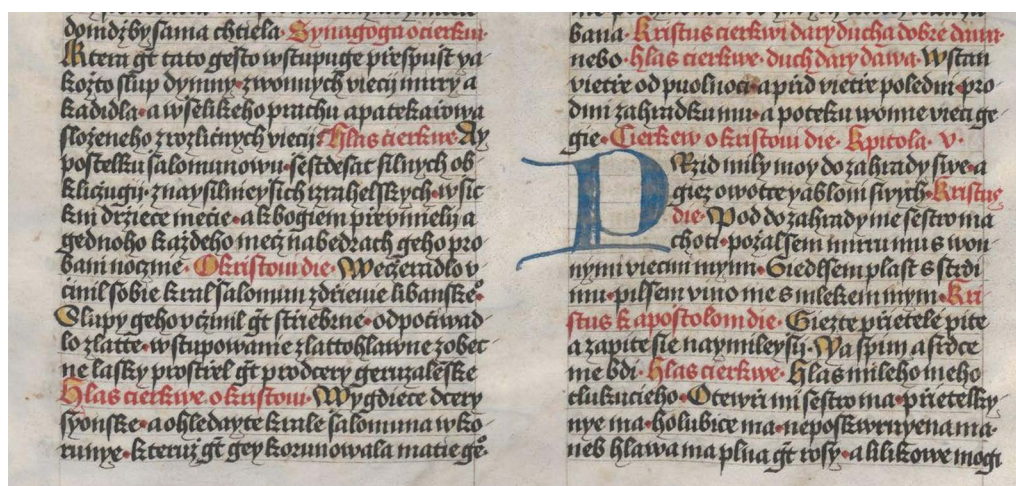 domdžby sama chtiela · Synagoga o cierkwi
Ktera gt tato gesto wstupuge přes pust ya
kožto slup dymny · z wonnych viecij mirry a
kadidla · a wselikeho prachu apatekařowa
složeneho z rozličnych viecij · Hlas cierkwe · Ay
postelku salomunowu · sestdesat silnych ob
kličugij · z naysilnieyšich izrahelskych · wsic
kni držiece mečie · a k bogiem převmielij a
gednoho každeho meč na bedrach geho pro
bani nočnie · O kristowi die · Wečeřadlo v
činil sobie kral salomun z dřiewie libanske°
Slupy geho včinil gt střiebrne · odpočiwad
lo zlatte · wstupowanie zlattohlawne zobec
ne lasky prostřel gt pro dcery geruzaleske
Hlas cierkwe o kristowi · Wygdiete dcery
syonske · a ohledayte krale salomuna w ko
runye · kteruž gt gey korunowala matie ge°
bana · Kristus cierkwi dary ducha dobre dawa
nebo · hlas cierkwe · duch dary dawa · Wstan
vietře od puolnoci · a přid vietře poledni · pro
dmi zahradku mu · a poteku wonne vieci ge
gie · Cierkew o kristowi die · Kpitola · v ·
PRzid mily moy do zahrady swe · a
giez owotce yabloni swych · Kristus
die · Pod do zahrady me sestro ma
choti · požal sem mirru mu s won
nymi viecmi mymi · Siedl sem plast s strdi
mu · pil sem vino me s mlekem mym · Kri
stus k apostolom die · Giezte přietele pite
a zapite sie naymileysij · Ya spim a srdce
me bdi · Hlas cierkwe · Hlas mileho meho
tlukucieho · Otewři mi sestro ma · přietelky
nye ma · holubice ma · neposkwrnyena ma ·
neb hlawa ma plna gt rosy · a lilikowe mogi